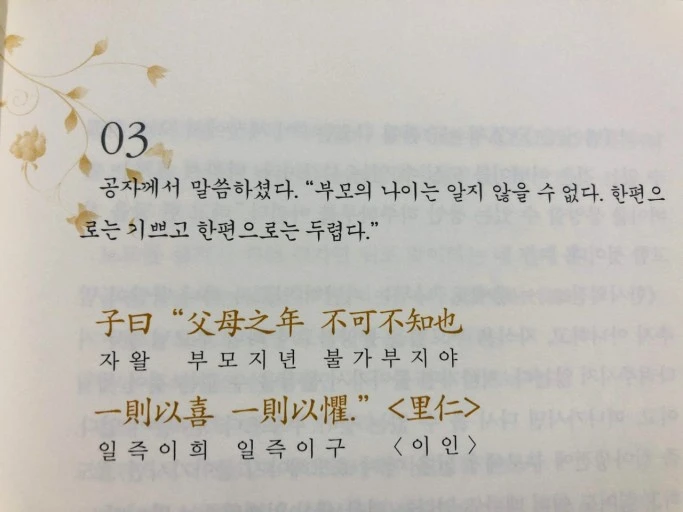 03
공자께서 말씀하셨다. “부모의 나이는 알지 않을 수 없다. 한편으
로는 기쁘고 한편으로는 두렵다.”
子曰 “父母之年 不可不知也
자왈 부모지년 불가부지야
一則以喜 一則以懼.” <里仁>
일즉이희 일즉이구 〈이인〉